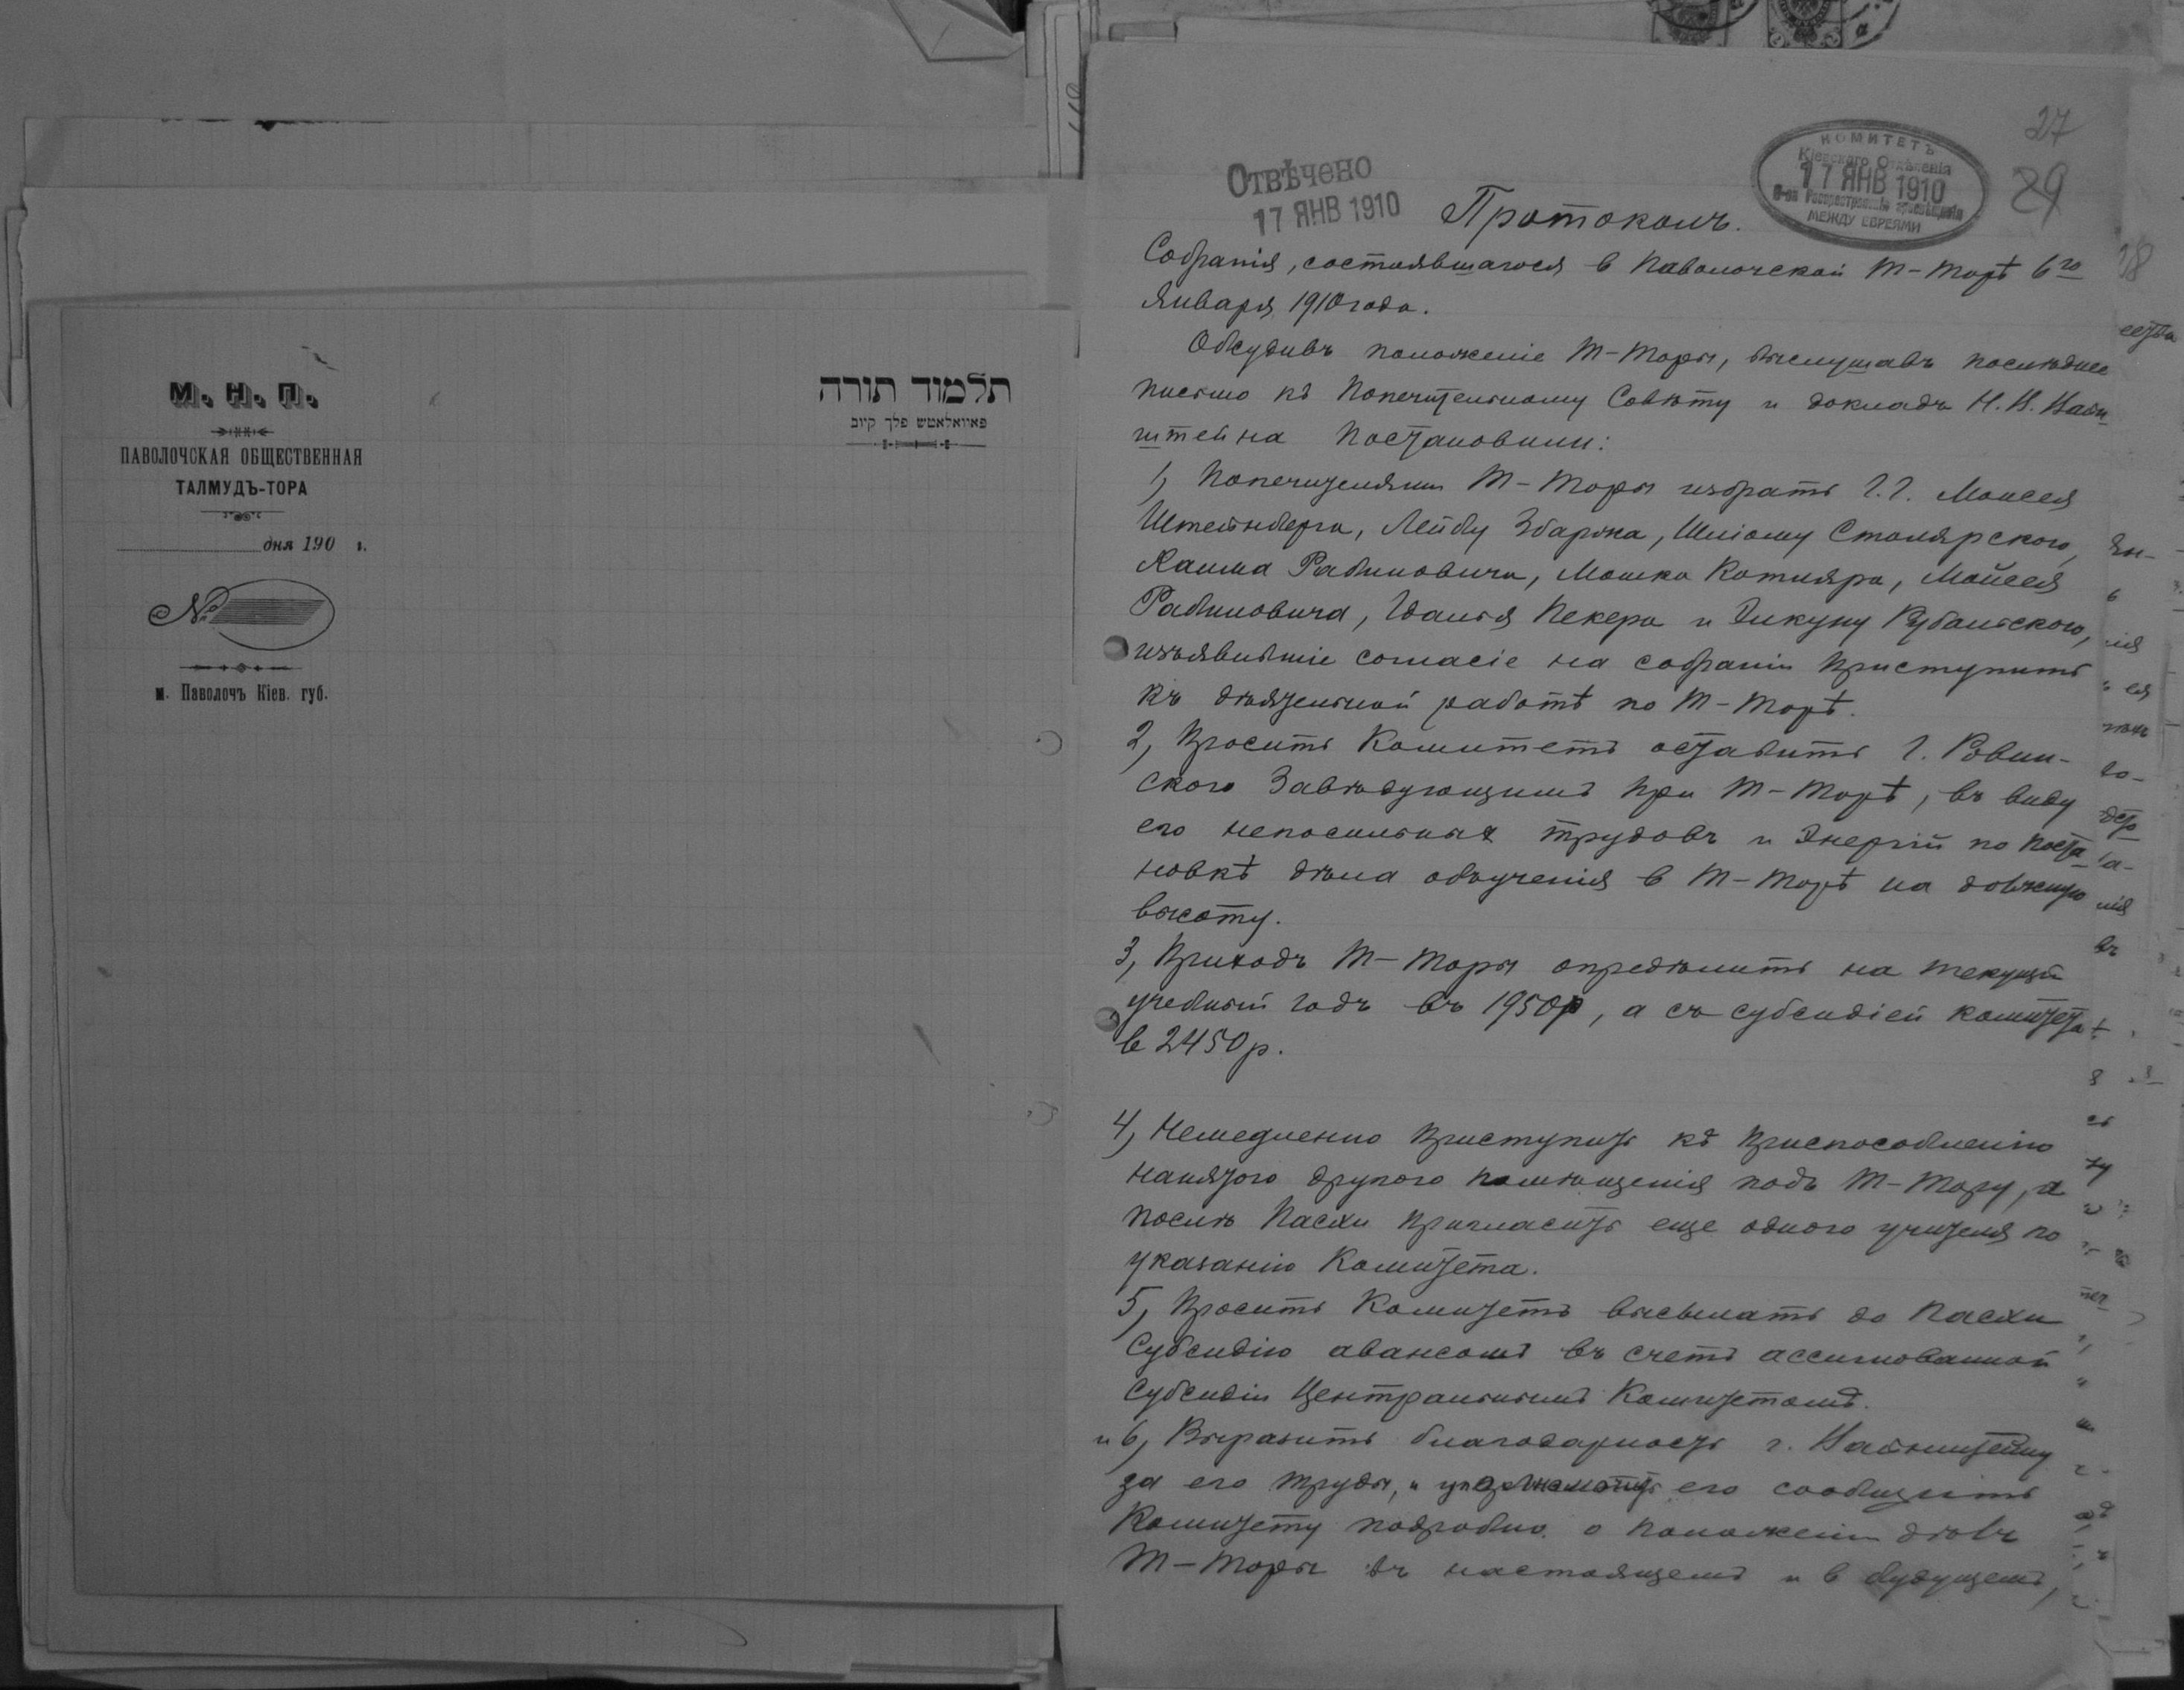 М. Н. П.
ПАВОЛОЧСКАЯ ОБЩЕСТВЕННАЯ
ТАЛМУДЪ-ТОРА
дня 190 г.
№
м. Паволочъ Кіев. губ.
תלמוד תורה
פאוואלאטש פלך קיוב
27
29
Отвѣчено
17 ЯНВ 1910
КОМИТЕТЪ
Кіевского Отдѣленія
17 ЯНВ 1910
О-ва Распространенія просвѣщенія
МЕЖДУ ЕВРЕЯМИ
Протоколъ.
Собранія, состоявшагося в Паволочской Т-Торѣ 6го
Января 1910 года.
Обсудивъ положеніе Т-Торы, выслушавъ послѣднее
письмо къ Попечительному Совѣту и докладъ Н. И. Вайн
штейна постановили:
1, Попечителями Т-Торы избрать г.г. Моисея
Штейнберга, Лейбу Збаржа, Шліому Столярского,
Хаима Рабиновича, Мошка Котляра, Мойсея
Рабиновича, Пекера и Рубанского,
изъявившіе согласіе на собраніи приступить
къ дѣятельной работѣ по Т-Торѣ.
2, Просить Комитетъ оставить г. Ровин-
ского Завѣдующимъ при Т-Торѣ, въ виду
его непосильных трудовъ и энергіи по поста
новкѣ дѣла обученія в Т-Торѣ на должную
высоту.
3, Приходъ Т-Торы опредѣлить на текущій
учебный годъ въ 1950р, а съ субсидіей комитета
в 2450р.
4, Немедленно приступить къ приспособленію
нанятого другого помѣщенія подъ Т-Тору, а
послѣ Пасхи пригласить еще одного учителя по
указанію Комитета.
5, Просить Комитетъ высылать до Пасхи
субсидію авансомъ въ счетъ ассигнованной
субсидіи Центральнымъ Комитетомъ.
и 6, Выразить благодарность г. Вайнштейну
за его труды, и его сообщить
Комитету подробно о положеніи дѣлъ
Т-Торы въ настоящемъ и в будущемъ,